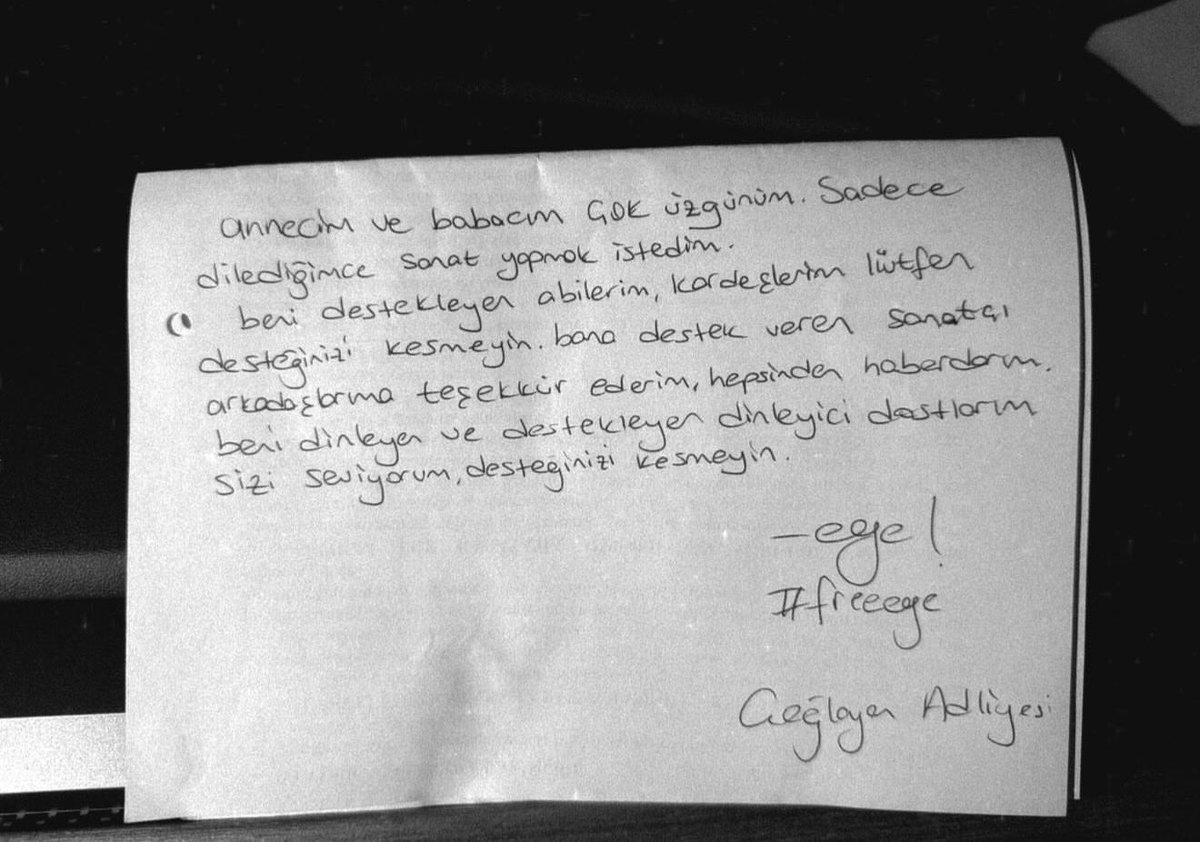 annecim ve babacım çok üzgünüm. Sadece
dilediğimce sanat yapmak istedim.
beni destekleyen abilerim, kardeşlerim lütfen
desteğinizi kesmeyin. bana destek veren sanatçı
arkadaşlarıma teşekkür ederim, hepsinden haberdarım.
beni dinleyen ve destekleyen dinleyici dostlarım
sizi seviyorum, desteğinizi kesmeyin.
-ege!
#freeege
Çağlayan Adliyesi